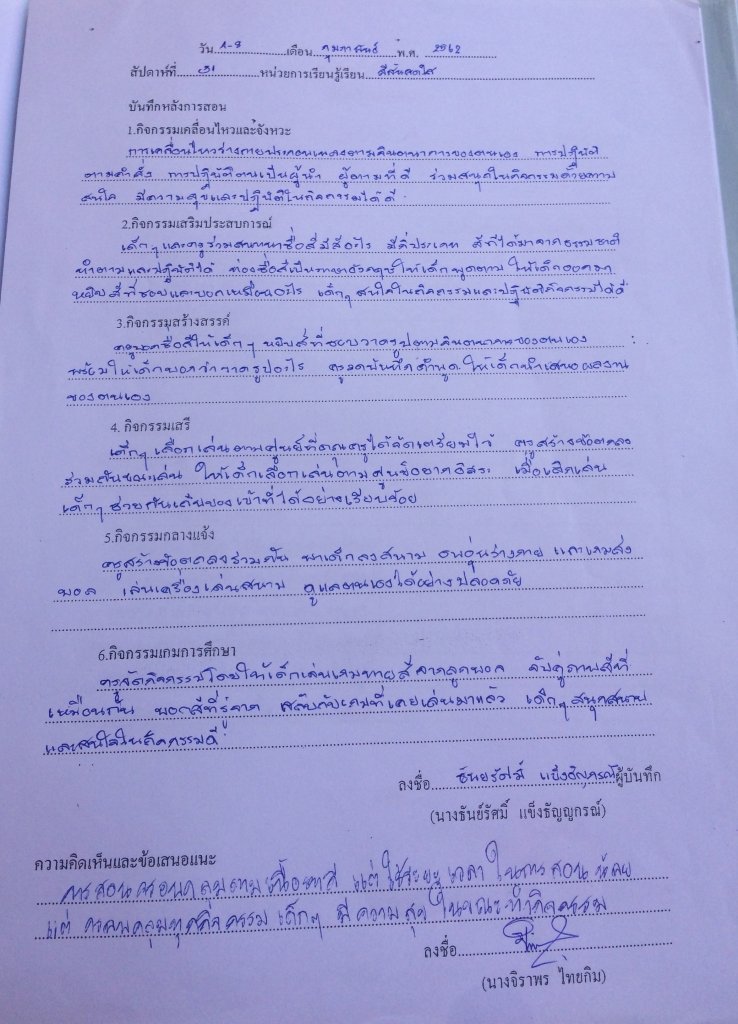 วัน 4-8 เดือน กุมภาพันธ์ พ.ศ. 2562
สัปดาห์ที่ 31 หน่วยการเรียนรู้เรียน สีสันสดใส
บันทึกหลังการสอน
1.กิจกรรมเคลื่อนไหวและจังหวะ
การเคลื่อนไหวร่างกายประกอบเพลงตามจินตนาการของตนเอง การปฏิบัติ
ตามคำสั่ง การปฏิบัติตนเป็นผู้นำ ผู้ตามที่ดี ร่วมสนุกในกิจกรรมด้วยความ
สนใจ มีความสุขและปฏิบัติในกิจกรรมได้ดี
2.กิจกรรมเสริมประสบการณ์
เด็กๆและครูร่วมสนทนาชื่อสีมีสีอะไร มีกี่ประเภท สีที่ได้มาจากธรรมชาติ
ทำตามและปฏิบัติได้ ท่องชื่อสีเป็นภาษาอังกฤษให้เด็กพูดตาม ให้เด็กออกมา
หยิบสีที่ชอบและบอกเหมือนอะไร เด็กๆ สนใจในกิจกรรมและปฏิบัติกิจกรรมได้ดี
3.กิจกรรมสร้างสรรค์
ครูบอกชื่อสีให้เด็กๆ หยิบสีที่ชอบวาดรูปตามจินตนาการของตนเอง
พร้อมให้เด็กบอกว่าวาดรูปอะไร ครูจดบันทึกคำพูด ให้เด็กนำเสนอผลงาน
ของตนเอง
4. กิจกรรมเสรี
เด็กๆ เลือกเล่นตามศูนย์ที่คุณครูได้จัดเตรียมไว้ ครูสร้างข้อตกลง
ร่วมกันขณะเล่น ให้เด็กเลือกเล่นตามศูนย์อย่างอิสระ เมื่อเลิกเล่น
เด็กๆช่วยกันเก็บของเข้าที่ได้อย่างเรียบร้อย
5.กิจกรรมกลางแจ้ง
ครูสร้างข้อตกลงร่วมกัน พาเด็กลงสนาม อบอุ่นร่างกาย เกมส่ง
บอล เล่นเครื่องเล่นสนาม ดูแลตนเองได้อย่างปลอดภัย
6.กิจกรรมเกมการศึกษา
ครูจัดกิจกรรมโดยให้เด็กเล่นเกมทายสีจากลูกบอล จับคู่ภาพสีที่
เหมือนกัน บอกสีที่รู้จัก สลับกับเกมที่เคยเล่นมาแล้ว เด็กๆสนุกสนาน
และสนใจในกิจกรรมดี
ลงชื่อ ธันย์รัศมิ์ แข็งธัญญกรณ์ ผู้บันทึก
(นางธันย์รัศมิ์ แข็งธัญญกรณ์)
ความคิดเห็นและข้อเสนอแนะ
การสอนครอบคลุมตามเนื้อหาดี แต่ใช้ระยะเวลาในการสอนน้อย
แต่ ครอบคลุมทุกกิจกรรม เด็กๆ มีความสุขในขณะทำกิจกรรม
ลงชื่อ
(นางจิราพร ไทยกิม)